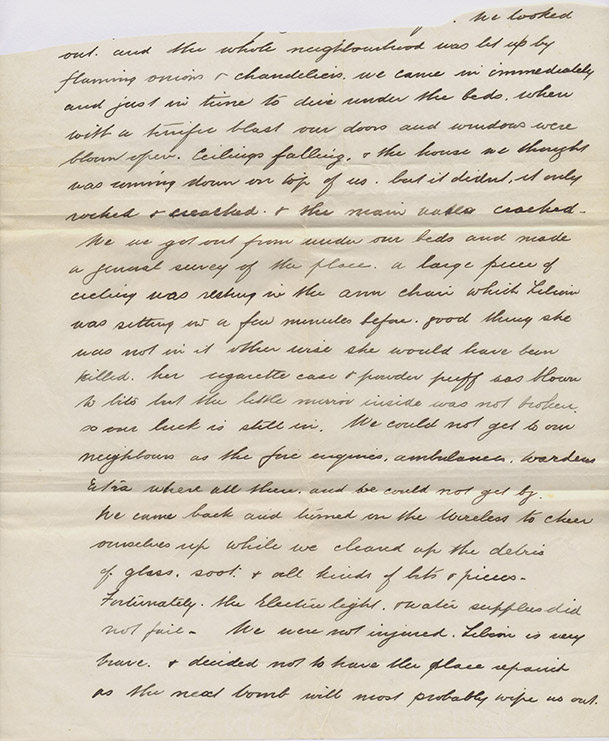 . We looked
out. and the whole neighbourhood was lit up by
flaming onions & chandeliers. we came in immediately
and just in time to dive under the beds. when
with a terrific blast our doors and windows were
blown open. Ceilings falling. & the house we thought
was coming down on top of us. but it didnt, it only
rocked & creacked. & the main walls cracked-
We we got out from under our beds and made
a general survey of the place. a large piece of
cieling was resting in the arm chair which Lilian
was sitting in a few minutes before. good thing she
was not in it other wise she would have been
killed. her cigarette case & powder puff was blown
to bits but the little mirror inside was not broken.
so our luck is still in. We could not get to our
neighbours as the fire engines. ambulances. wardens
Extra where all there. and we could not get by.
We came back and turned on the wireless to cheer
ourselves up while we cleared up the debris
of glass. soot. & all kinds of bits & pieces-
Fortunately. the Electric light. & water supplies did
not fail- We were not injured. Lilian is very
brave. & decided not to have the place repaired
as the next bomb will most probably wipe us out.